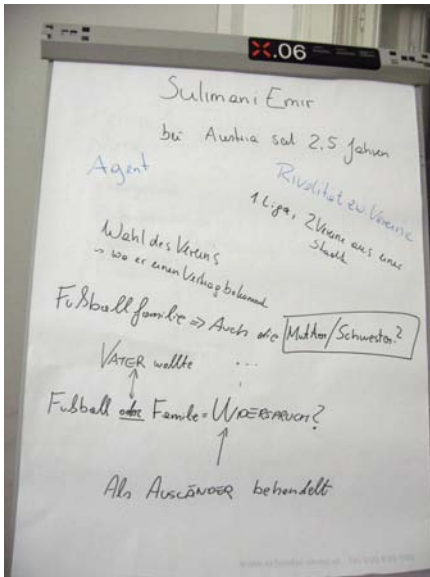 X.06
Sulimani Emir
bei Austria seit 2,5 Jahren
Agent
Rivalität zu Vereine
1 Liga, 2 Vereine aus einer
Stadt
Wahl des Vereins
wo er einen Vertrag bekommt
Fußballfamilie => Auch die Mutter/Schwester?
VATER wollte ...
Fußball oder Familie = WIDERSPRUCH?
Als AUSLÄNDER behandelt